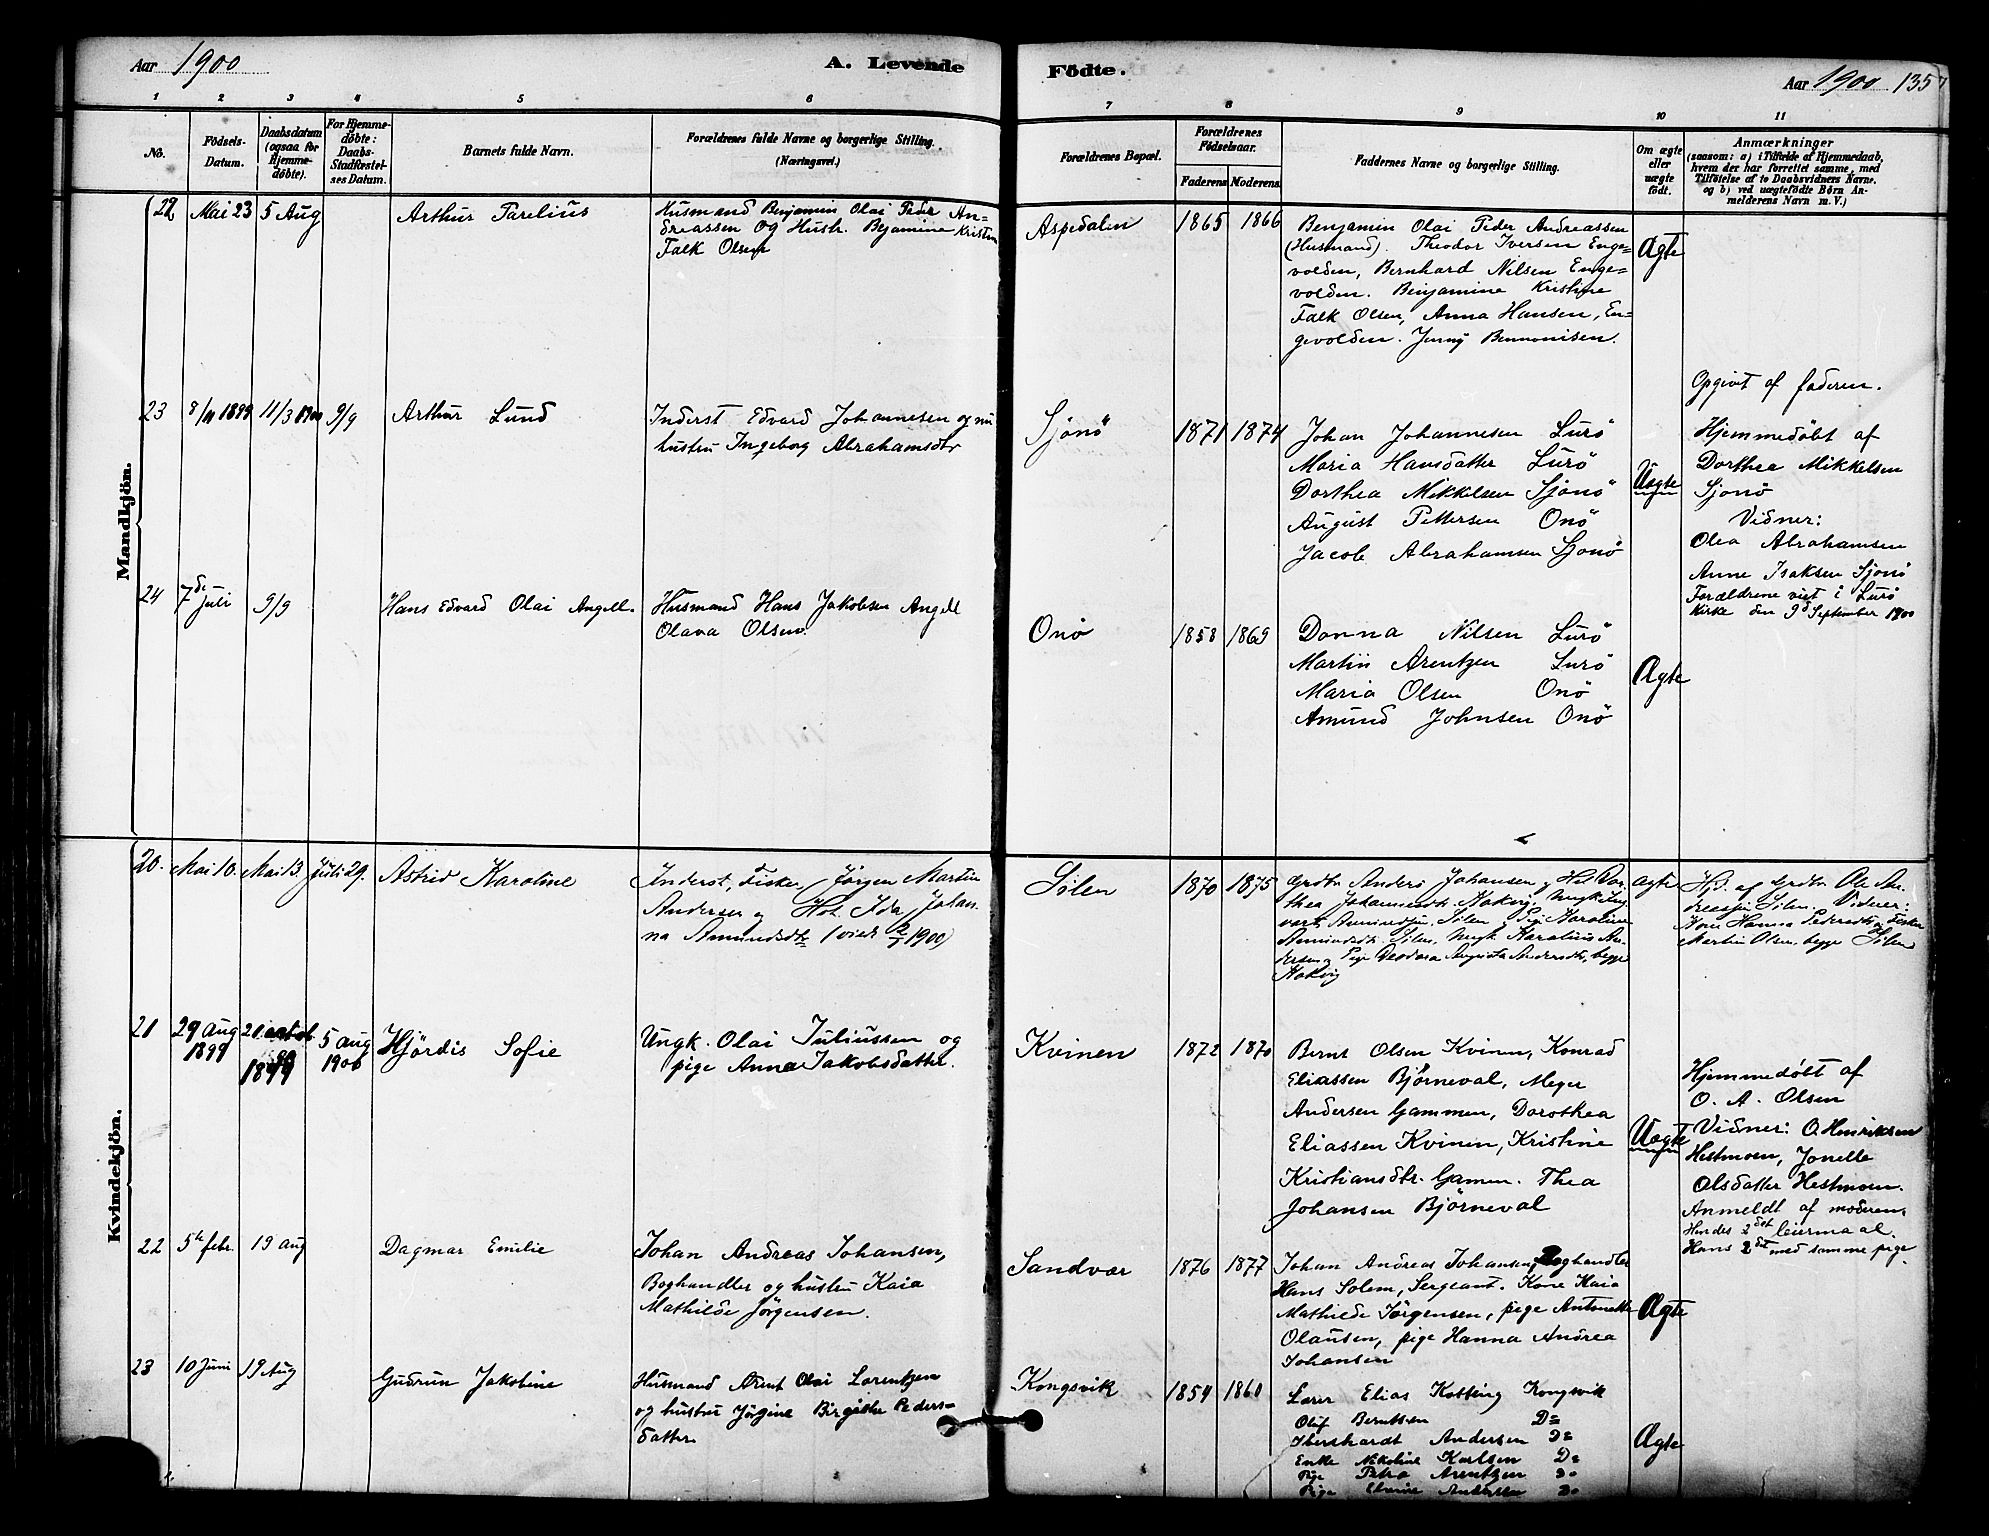 Aar 1900
A. Levende
Födte.
Aar 1900 135
1 2 3 4 5 6 7 8 9 10 11
No.
Födsels-
Datum.
Daabsdatum
(ogsaa for
Hjemme-
döbte).
For Hjemme-
döbte:
Daabs-
Stadfæstel-
ses Datum.
Barnets fulde Navn.
Forældrenes fulde Navne og borgerlige Stilling.
(Næringsvei.)
Forældrenes Bopæl.
Forældrenes
Födselsaar.
Faderens. Moderens.
Faddernes Navne og borgerlige Stilling.
Om ægte
eller
uægte
födt.
Anmærkninger
(saasom: a) i Tilfælde af Hjemmedaab,
hvem der har forrettet samme, med
Tilföielse af to Daabsvidners Navne.
og b) ved uægtefödte Börn An-
melderens Navn m. V.)
Mandkjön.
22 Mai 23 5 Aug Arthur Parelius
Husmand Benjamin Olai Peder An-
dreassen og Hustr. Bejamine Kristin
Falk Olsen
Aspedalen 1865 1866
Benjamin Olai Peder Andreassen
(Husmand). Theodor Iversen Enge-
volden, Bernhard Nilsen Enge-
volden. Benjamine Kristine
Falk Olsen, Anna Hansen, En-
gevolden. Jenny Bennonisen.
Ægte
23 8/11 1899 11/3 1900 9/9 Arthur Lund
Inderst Edvard Johannesen og nu
hustru Ingeborg Abrahamsdtr
Sjonö 1871 1874
Johan Johannesen Lurö
Maria Hansdatter Lurö
Dorthea Mikkelsen Sjonö
August Pettersen Onö
Jacob Abrahamsen Sjonö
Uægte
Opgivt af faderen.
Hjemmedöbt af
Dorthea Mikkelsen
Sjonö
Vidner:
Olea Abrahamsen
Anne Isaksen Sjonö
Forældrene viet i Lurö
Kirke den 9d September 1900
24 7de Juli 9/9 Hans Edvard Olai Angell.
Husmand Hans Jakobsen Angell
Olava Olsen.
Onö 1858 1869
Donna Nilsen Lurö
Martin Arentzen Lurö
Maria Olsen Onö
Amund Johnsen Onö
Ægte
Kvindekjön.
20. Mai 10. Mai 13. Juli 29. Astrid Karoline
Inderst, Fisker Jörgen Martin
Andersen og Hst. Ida Johan-
na Amundsdtr (viet 1900)
Silen 1870 1875
Grdbr Anders Johansen
thea Johannesdtr
Silen, Pige Karoline
Amundsdtr. Silen, Ungk Karolius An-
dersen og Pige Theodora Augusta Andersdtr, begge
Ægte
Hjd. af Grdbr Ole An-
dreassen Silen. Vidner:
Kone Hanna Pedersdtr og Fisker
Martin Olsen, begge Silen
21 29 Aug 1899 1899 5 Aug 1900 Hjördis Sofie
Ungk. Olai Juliussen og
pige Anna Jakobsdatter.
Kvinen 1872 1870
Bernt Olsen Kvinen, Konrad
Eliassen Björneval, Meyer
Andersen Gammen, Dorothea
Eliassen Kvinen, Kristine
Kristiansdtr. Gamen. Thea
Johansen Björneval
Uægte
Hjemmedöbt af
O. A. Olsen
Vidner: O. Henriksen
Hestmoen, Jonelle
Olsdatter Hestmoen.
Anmeldt af moderen,
Hendes 2det leiermaal.
Hans 2det med samme pige.
22 5te febr. 19 aug Dagmar Emilie
Johan Andreas Johansen,
Boghandler og hustru Kaia
Mathilde Jörgensen.
Sandvær 1876 1877
Johan Andreas Johansen, Boghandler
Hans Solem, Sergeant. Kone Kaia
Mathilde Jörgensen, pige Antonette
Olausen, pige Hanna Andrea
Johansen
Ægte
23 10 Juni 19 Aug Gudrun Jakobine
Husmand Arent Olai Lorentzen
og hustru Jörgine Birgitte Peders-
datter
Kongsvik 1854 1860
Lærer Elias Kotteng Kongsvik
Oluf Berntsen Do
Ibershardt Andersen Do
Enke Nikoline Karlsen Do
Pige Petra Arentzen Do
Pige Andersen Do
Ægte